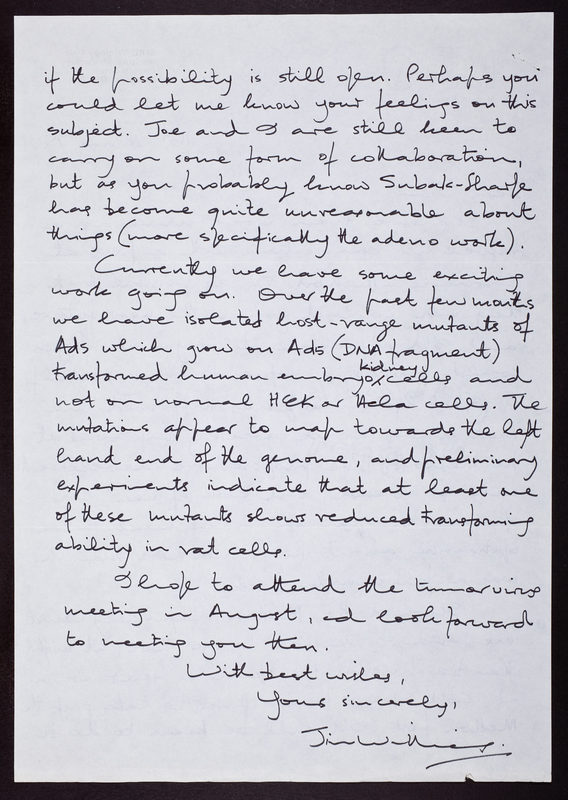 if the possibility is still open. Perhaps you
could let me know your feelings on this
subject. Joe and I are still keen to
carry on some form of collaboration,
but as you probably know Subak-Sharpe
has become quite unreasonable about
things (more specifically the adeno work).
Currently we have some exciting
work going on. Over the past few months
we have isolated host-range mutants of
Ad5 which grow on Ad5 (DNA fragment)
kidney
transformed human embryo cells and
not on normal HEK or HeLa cells. The
mutations appear to map towards the left
hand end of the genome, and preliminary
experiments indicate that at least one
of these mutants shows reduced transforming
ability in rat cells.
I hope to attend the tumor virus
meeting in August, and look forward
to meeting you then.
With best wishes,
Yours sincerely,
Jim Williams.